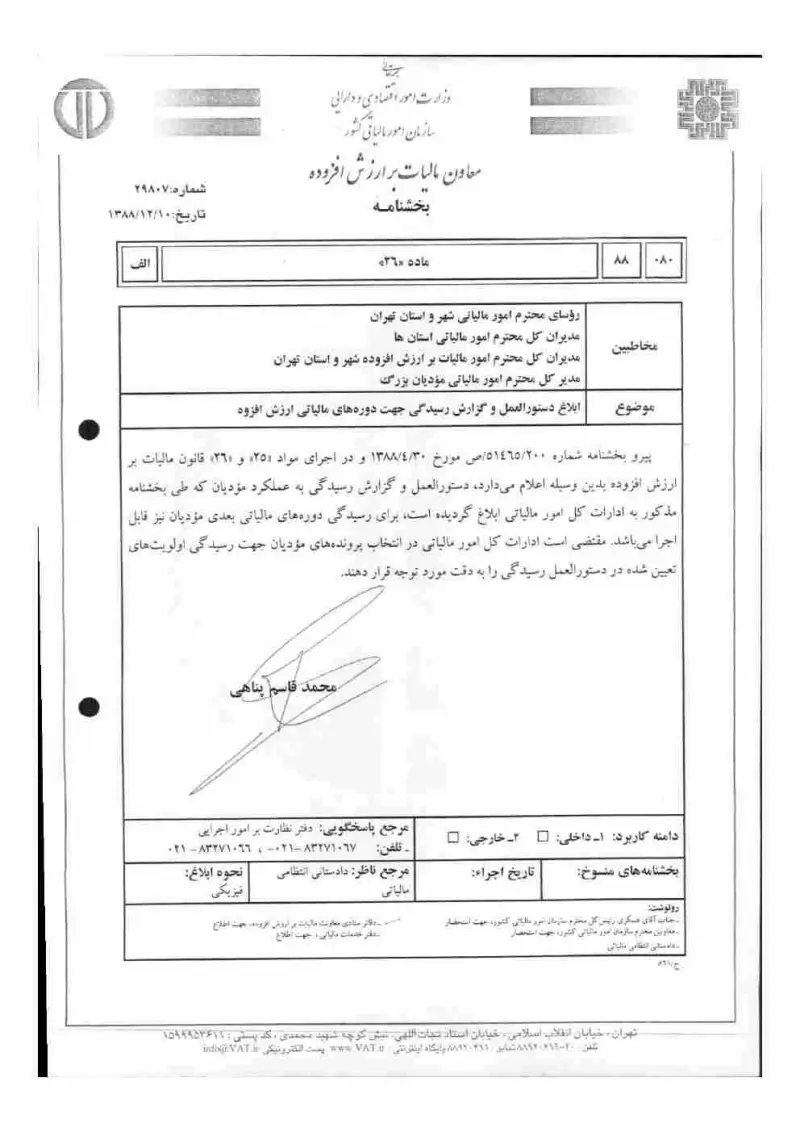 وزارت امور اقتصادی و دارایی
سازمان امور مالیاتی کشور
معاون مالیات بر ارزش افزوده
شماره: ۲۹۸۰۷
بخشنامه
تاریخ: ۱۳۸۸/۱۲/۱۰
۰۸۰ ۸۸ ماده «۲۶» الف
مخاطبین
رؤسای محترم امور مالیاتی شهر و استان تهران
مدیران کل محترم امور مالیاتی استان ها
مدیران کل محترم امور مالیات بر ارزش افزوده شهر و استان تهران
مدیر کل محترم امور مالیاتی مؤدیان بزرگ
موضوع ابلاغ دستورالعمل و گزارش رسیدگی جهت دوره‌های مالیاتی ارزش افزوه
پیرو بخشنامه شماره ۵۱۴۶۵/۲۰۰/ص مورخ ۱۳۸۸/۴/۳۰ و در اجرای مواد «۲۵» و «۲۶» قانون مالیات بر
ارزش افزوده بدین وسیله اعلام می‌دارد، دستورالعمل و گزارش رسیدگی به عملکرد مؤدیان که طی بخشنامه
مذکور به ادارات کل امور مالیاتی ابلاغ گردیده است، برای رسیدگی دوره‌های مالیاتی بعدی مؤدیان نیز قابل
اجرا می‌باشد. مقتضی است ادارات کل امور مالیاتی در انتخاب پرونده‌های مؤدیان جهت رسیدگی اولویت‌های
تعیین شده در دستورالعمل رسیدگی را به دقت مورد توجه قرار دهند.
محمد قاسم پناهی
دامنه کاربرد: ۱ـ داخلی: ☐ ۲ـ خارجی: ☐
مرجع پاسخگویی: دفتر نظارت بر امور اجرایی
ـ تلفن: ۸۳۲۷۱۰۶۷-۰۲۱ ، ۸۳۲۷۱۰۶۶-۰۲۱
بخشنامه‌های منسوخ: تاریخ اجراء: مرجع ناظر: دادستانی انتظامی مالیاتی نحوه ابلاغ: فیزیکی
رونوشت:
ـ جناب آقای عسکری رئیس کل محترم سازمان امور مالیاتی کشور، جهت استحضار
ـ معاونین محترم سازمان امور مالیاتی کشور، جهت استحضار
ـ دادستانی انتظامی مالیاتی
ـ دفاتر ستادی معاونت مالیات بر ارزش افزوده، جهت اطلاع
ـ دفتر خدمات مالیاتی، جهت اطلاع
تهران، خیابان انقلاب اسلامی، خیابان استاد نجات اللهی، نبش کوچه شهید محمدی، کد پستی: ۱۵۹۹۹۵۳۶۱۱
پایگاه اینترنتی: www.VAT.ir پست الکترونیکی info@VAT.ir